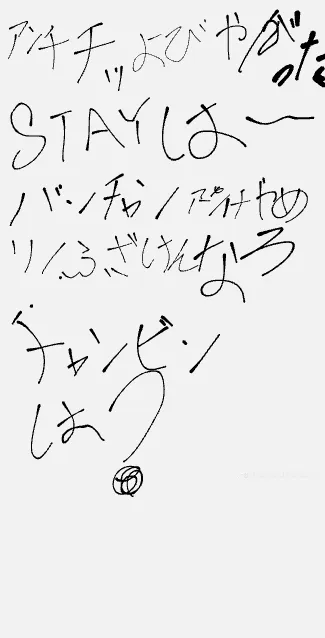 アンチチッよびやがった
STAYはー
バンチャンアンチやめ
リノふざけんなろ
チャンビン
はつ?